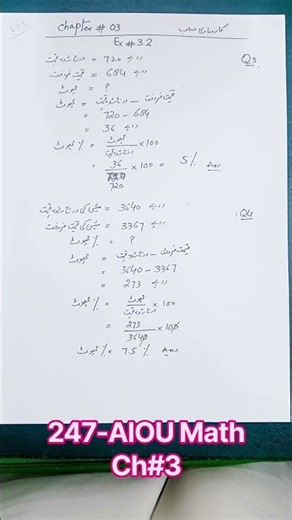 کاروباری حساب Chapter # 03
Ex # 3.2
Q3 درج شدہ قیمت = 720 روپے
قیمت فروخت = 684 روپے
چھوٹ = ?
چھوٹ = درج شدہ قیمت – قیمت فروخت
= 720 – 684
= 36 روپے
چھوٹ % = چھوٹ / درج شدہ قیمت × 100
= 36 / 720 × 100 = 5 % Ans
Q4 درج شدہ قیمت = 3640 روپے
قیمت فروخت = 3367 روپے
چھوٹ % = ?
چھوٹ = درج شدہ قیمت – قیمت فروخت
= 3640 – 3367
= 273 روپے
چھوٹ % = چھوٹ / درج شدہ قیمت × 100
= 273 / 3640 × 100
چھوٹ % = 7.5 % Ans
247-AIOU Math
Ch#3